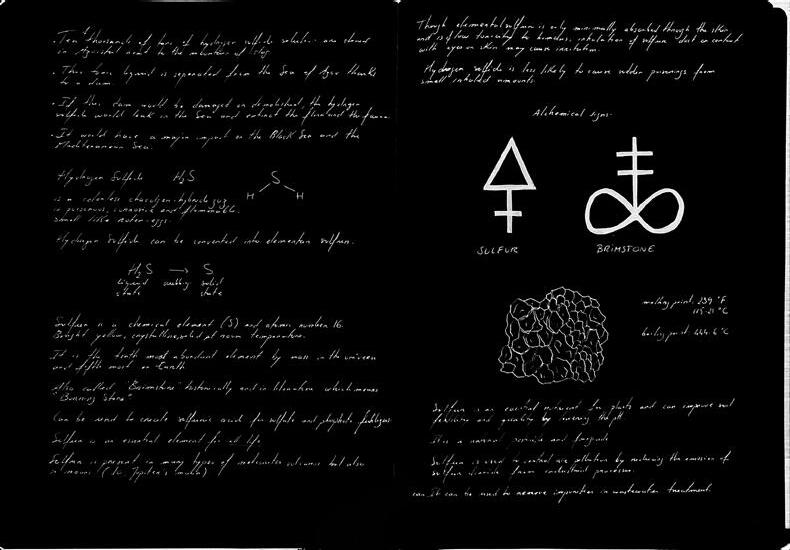 · Ten thousands of tons of hydrogen sulfide solution are stored
in Azovstal next to the mountain of slag.
· This toxic liquid is separated from the Sea of Azov thanks
to a dam.
· If this dam would be damaged or demolished, the hydrogen
sulfide would leak in the Sea and extinct the flora and the fauna.
· It would have a major impact on the Black Sea and the
Mediterranean Sea.
Hydrogen Sulfide H₂S
S
H H
is a colorless chalcogen-hybride gas
is poisonous, corrosive and flammable.
smell like rotten eggs.
Hydrogen Sulfide can be converted into elementar sulfur.
H₂S → S
liquid solid
state state
Sulfur is a chemical element (S) and atomic number 16.
Bright yellow, crystalline solid at room temperature.
It is the tenth most abundant element by mass in the universe
and fifth most on Earth
Also called "Brimstone" historically and in literature which means
"Burning Stone"
Can be used to create sulfuric acid for sulfate and phosphate fertilizers
Sulfur is an essential element for all life
Sulfur is present in many types of meteorites volcanos but also
in moons (Io Jupiter's moon)
Though elemental sulfur is only minimally absorbed through the skin
and is of low toxicity to humans, inhalation of sulfur dust or contact
with eyes or skin may cause irritation.
Hydrogen sulfide is less likely to cause sudden poisonings from
small inhaled amounts.
Alchemical signs
SULFUR BRIMSTONE
melting point: 239 °F
115.21 °C
boiling point: 444.6 °C
Sulfur is an essential nutrient for plants and can improve soil
fertility and quality by lowering the pH
It is a natural pesticide and fungicide
Sulfur is used to control air pollution by reducing the emission of
sulfur dioxide from industrial processes.
can It can be used to remove impurities in wastewater treatment.